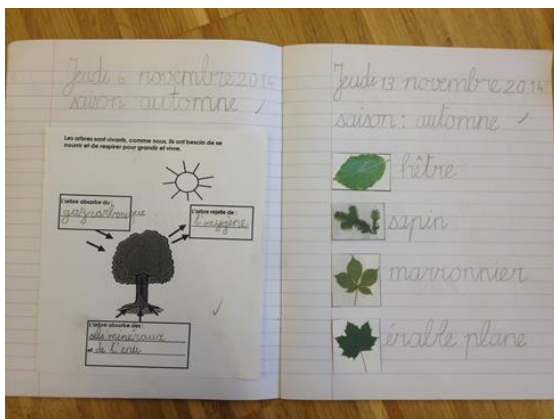 Jeudi 6 novembre 2014
saison : automne
Les arbres sont vivants, comme nous. Ils ont besoin de se
nourrir et de respirer pour grandir et vivre.
L'arbre absorbe du :
gaz carbonique
L'arbre rejette de :
l'oxygène
L'arbre absorbe des :
sels minéraux
et de l'eau
Jeudi 13 novembre 2014
saison : automne
hêtre
sapin
marronnier
érable plane